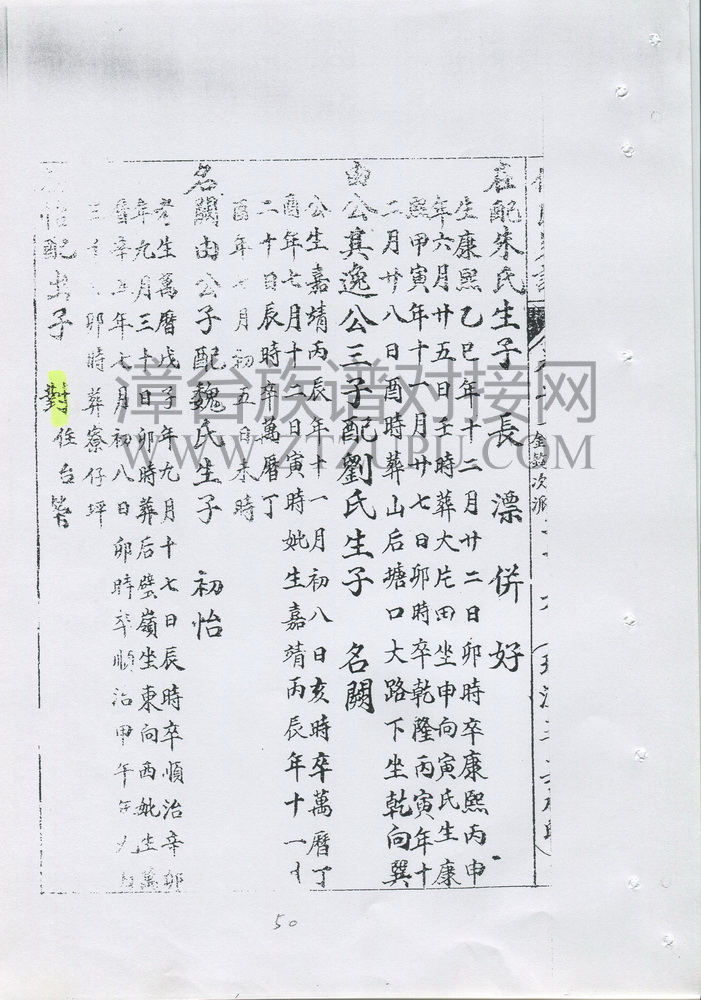 金鈫次派
在配朱氏生子 長 漂 併 好
生康熙乙巳年十二月廿二日卯時卒康熙丙申
年六月廿五日壬時葬大片田坐申向寅氏生康
熙甲寅年十一月廿七日卯時卒乾隆丙寅年十
二月廿八日酉時葬山后塘口大路下坐乾向巽
由公真逸公三子配劉氏生子 名闕
公生嘉靖丙辰年十一月初八日亥時卒萬曆丁
酉年七月十二日寅時妣生嘉靖丙辰年十一
二十日辰時卒萬曆丁
酉年七月初五日未時
名闕由公子配魏氏生子 初怡
考生萬曆戊子年九月十七日辰時卒順治辛卯
年九月三十日卯時葬后壁嶺坐東向西妣生萬
曆辛丑年七月初八日卯時卒順治甲午年九月
三十 卯時葬寮仔坪
怡配 出子 對
住台灣
漳台族谱对接网
WWW.ZTZUPU.COM
50